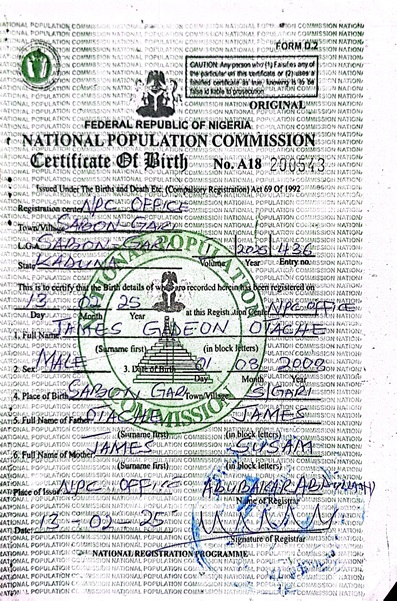 FORM D.2
CAUTION: Any person who (1) Falsifies any of the particular on this certificate or (2) uses a falsified certificate as true, knowing it to be false is liable to prosecution
ORIGINAL
FEDERAL REPUBLIC OF NIGERIA
NATIONAL POPULATION COMMISSION
Certificate Of Birth No. A18 200543
Issued Under The Births and Death Etc. (Compulsory Registration) Act 69 Of 1992
Registration NPC OFFICE
Town/Village SABON GARI
L.G.A SABON GARI 2025 436
State KADUNA Volume Year Entry no.
This is to certify that the Birth details of recorded herein has been registered on
13 02 25 at this Registration NPC OFFICE
Day Month Year
1. Full Name JAMES GIDEON OTACHE
(Surname first) (in block letters)
2. Sex MALE 3. Date of Birth 01 03 2000
Day Month Year
4. Place of Birth SABON GARI Town/Village S/GARI
5. Full Name of Father OTACHE JAMES
(Surname first) (in block letters)
6. Full Name of Mother JAMES SUSAM
(Surname first) (in block letters)
Place of Issue NPC OFFICE ABUBAKAR
Name of Registrar
Date 13-02-25
Signature of Registrar
NATIONAL REGISTRATION PROGRAMME
NATIONAL POPULATION COMMISSION